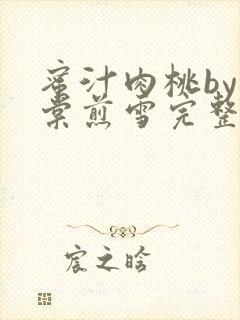 蜜汁肉桃by
棠煎雪完整
宸之晗